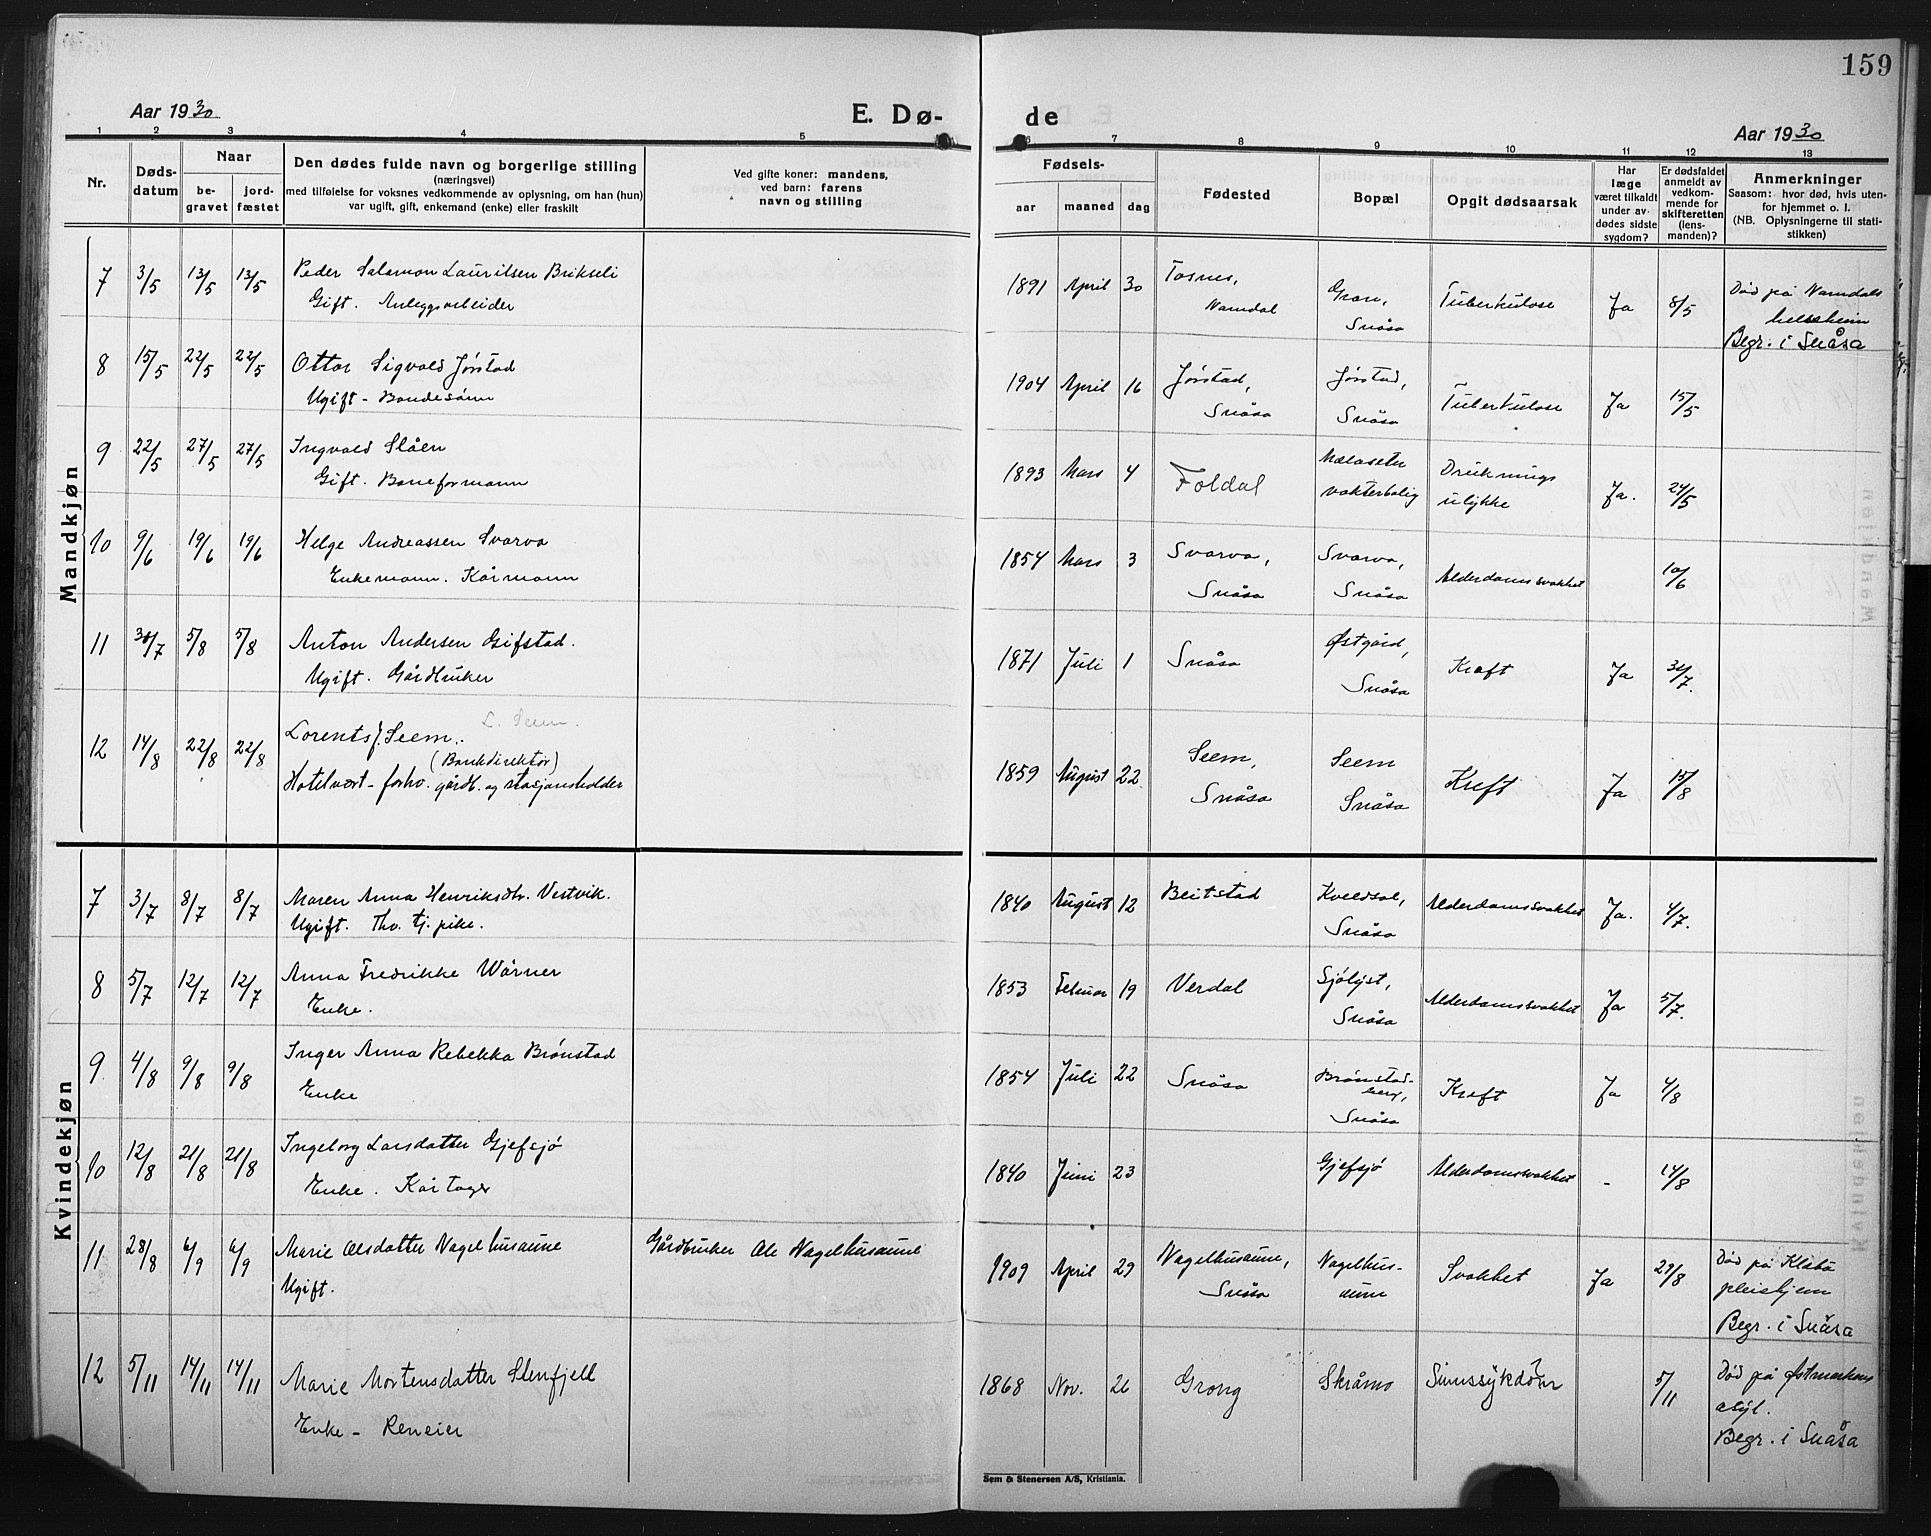 159
Aar 1930
E. Dø-
de
Aar 1930
1 2 3 4 5 6 7 8 9 10 11 12 13
Nr.
Døds-
datum
Naar
be-
gravet
jord-
fæstet
Den dødes fulde navn og borgerlige stilling
(næringsvei)
med tilføielse for voksnes vedkommende av oplysning, om han (hun)
var ugift, gift, enkemand (enke) eller fraskilt
Ved gifte koner: mandens,
ved barn: farens
navn og stilling
Fødsels-
aar maaned dag
Fødested
Bopæl
Opgit dødsaarsak
Har
læge
været tilkaldt
under av-
dødes sidste
sygdom?
Er dødsfaldet
anmeldt av
vedkom-
mende for
skifteretten
(lens-
manden)?
Anmerkninger
Saasom: hvor død, hvis uten-
for hjemmet o. l.
(NB. Oplysningerne til stati-
stikken)
Mandkjøn
7 3/5 13/5 13/5 Peder Salamon Lauritsen Brikseli
Gift. Anleggsarbeider
1891 April 30 Tosnes,
Namdal
Gran,
Snåsa
Tuberkulose Ja 8/5
Død på Namdals
Begr. i Snåsa
8 15/5 22/5 22/5 Ottar Sigvald Jørstad
Ugift - Bondesønn
1904 April 16 Jørstad,
Snåsa
Jørstad,
Snåsa
Tuberkulose Ja 15/5
9 22/5 27/5 27/5 Ingvald Slåen
Gift. Baneformann
1893 Mars 4 Foldal
vokterbolig
Druknings
ulykke
Ja. 24/5
10 9/6 19/6 19/6 Helge Andreassen Svarva
Enkemann. Kårmann
1854 Mars 3 Svarva,
Snåsa
Svarva,
Snåsa
Alderdomssvakhet 10/6
11 30/7 5/8 5/8 Anton Andersen Gifstad.
Ugift. Gårdbruker
1871 Juli 1 Snåsa
Østgård,
Snåsa
Kreft Ja 31/7.
12 14/8 22/8 22/8 Lorents J. Seem.
L. Seem.
(Bankdirektør)
Hotelvært - forhv. gårdb. og stasjonsholder
1859 August 22 Seem,
Snåsa
Seem
Snåsa
Kreft Ja 15/8
Kvindekjøn
7 3/7 8/7 8/7 Maren Anna Henriksdtr. Vestvik.
Ugift. Fhv. tj. pike.
1840 August 12 Beitstad
Kveldsol,
Snåsa
Alderdomssvakhet Ja. 4/7.
8 5/7 12/7 12/7 Anna Fredrikke Wärner
Enke.
1853 Februar 19 Verdal
Sjölyst,
Snåsa
Alderdomssvakhet Ja 5/7.
9 4/8 9/8 9/8 Inger Anna Rebekka Brønstad
Enke
1854 Juli 22 Snåsa
Brønstad-
berg,
Snåsa
Kreft Ja 4/8
10 12/8 21/8 21/8 Ingeborg Larsdatter Gjefsjø
Enke. Kårtager
1840 Juni 23
Gjefsjø
Alderdomssvakhet - 14/8
11 28/8 6/9 6/9 Marie Olsdatter Nagelhusaune
Ugift.
Gårdbruker Ole Nagelhusaune
1909 April 29 Nagelhusaune,
Snåsa
Nagelhus-
aune
Svakhet Ja 29/8
Død på Klæbu
pleiehjem
Begr. i Snåsa
12 5/11 14/11 14/11 Marie Mortensdatter Stenfjell
Enke - Reneier
1868 Nov. 26 Grong
Skråmo
Sinnssykdom ? 5/11
Død på Østmarkens
asyl.
Begr. i Snåsa
Sem & Stenersen A/S, Kristiania.